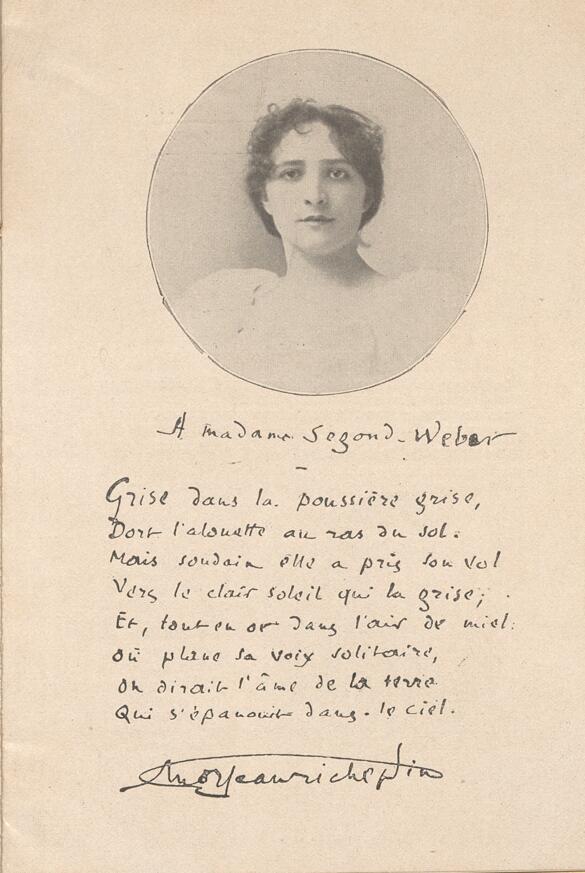 A madame Segond-Weber
Grise dans la poussière grise,
Dort l'alouette au ras du sol.
Mais soudain elle a pris son vol
Vers le clair soleil qui la grise;
Et, tout en or dans l'air de miel
où plane sa voix solitaire,
on dirait l'âme de la terre
Qui s'épanouit dans le ciel.
Jean richepin